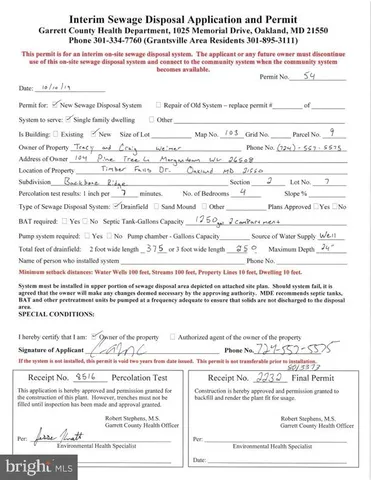 Interim Sewage Disposal Application and Permit
Garrett County Health Department, 1025 Memorial Drive, Oakland, MD 21550
Phone 301-334-7760 (Grantsville Area Residents 301-895-3111)
This permit is for an interim on-site sewage disposal system. The applicant or any future owner must discontinue
use of this on-site sewage disposal system and connect to the community system when the community system
becomes available.
Permit No. 54
Date: 10/10/19
Permit for: ✓ New Sewage Disposal System □ Repair of Old System – replace permit # of
System to serve: ✓ Single family dwelling □ Other
Is Building: □ Existing ✓ New Size of Lot Map No. 103 Grid No. Parcel No. 9
Owner of Property Tracy and Craig Weimer Phone No. (724)-557-5575
Address of Owner 104 Pine Tree Ln Morgantown WV 26508
Location of Property Timber Falls Dr. Oakland MD 21550
Subdivision Backbone Ridge Section 2 Lot No. 7
Percolation test results: 1 inch per 7 minutes. No. of Bedrooms 4 Slope %
Type of Sewage Disposal System: ✓ Drainfield □ Sand Mound □ Other Plans Approved □ Yes □ No
BAT required: □ Yes □ No Septic Tank-Gallons Capacity 1250 gal 2 compartment
Pump system required: □ Yes □ No Pump chamber - Gallons Capacity Source of Water Supply Well
Total feet of drainfield: 2 foot wide length 375 or 3 foot wide length 250 Maximum Depth 24"
Name of person who installed system Phone No.
Minimum setback distances: Water Wells 100 feet, Streams 100 feet, Property Lines 10 feet, Dwelling 10 feet.
System must be installed in upper portion of sewage disposal area depicted on attached site plan. Should system fail, it is
agreed that the owner will make any changes deemed necessary by the approving authority. MDE recommends septic tanks,
BAT and other pretreatment units be pumped at a frequency adequate to ensure that solids are not discharged to the disposal
area.
SPECIAL CONDITIONS:
I hereby certify that I am: ✓ Owner of the property □ Authorized agent of the owner of the property
Signature of Applicant Phone No. 724-557-5575
If the system is not installed, this permit is void two years from date issued. This permit is not transferable prior to installation.
Receipt No. 8516 Percolation Test
This application is hereby approved and permission granted for
the construction of this plant. However, trenches must not be
filled until inspection has been made and approval granted.
Robert Stephens, M.S.
Garrett County Health Officer
Per:
Environmental Health Specialist
5013373
Receipt No. 2232 Final Permit
Construction is hereby approved and permission granted to
backfill and render the plant fit for usage.
Robert Stephens, M.S.
Garrett County Health Officer
Per:
Environmental Health Specialist
Date:
bright MLS